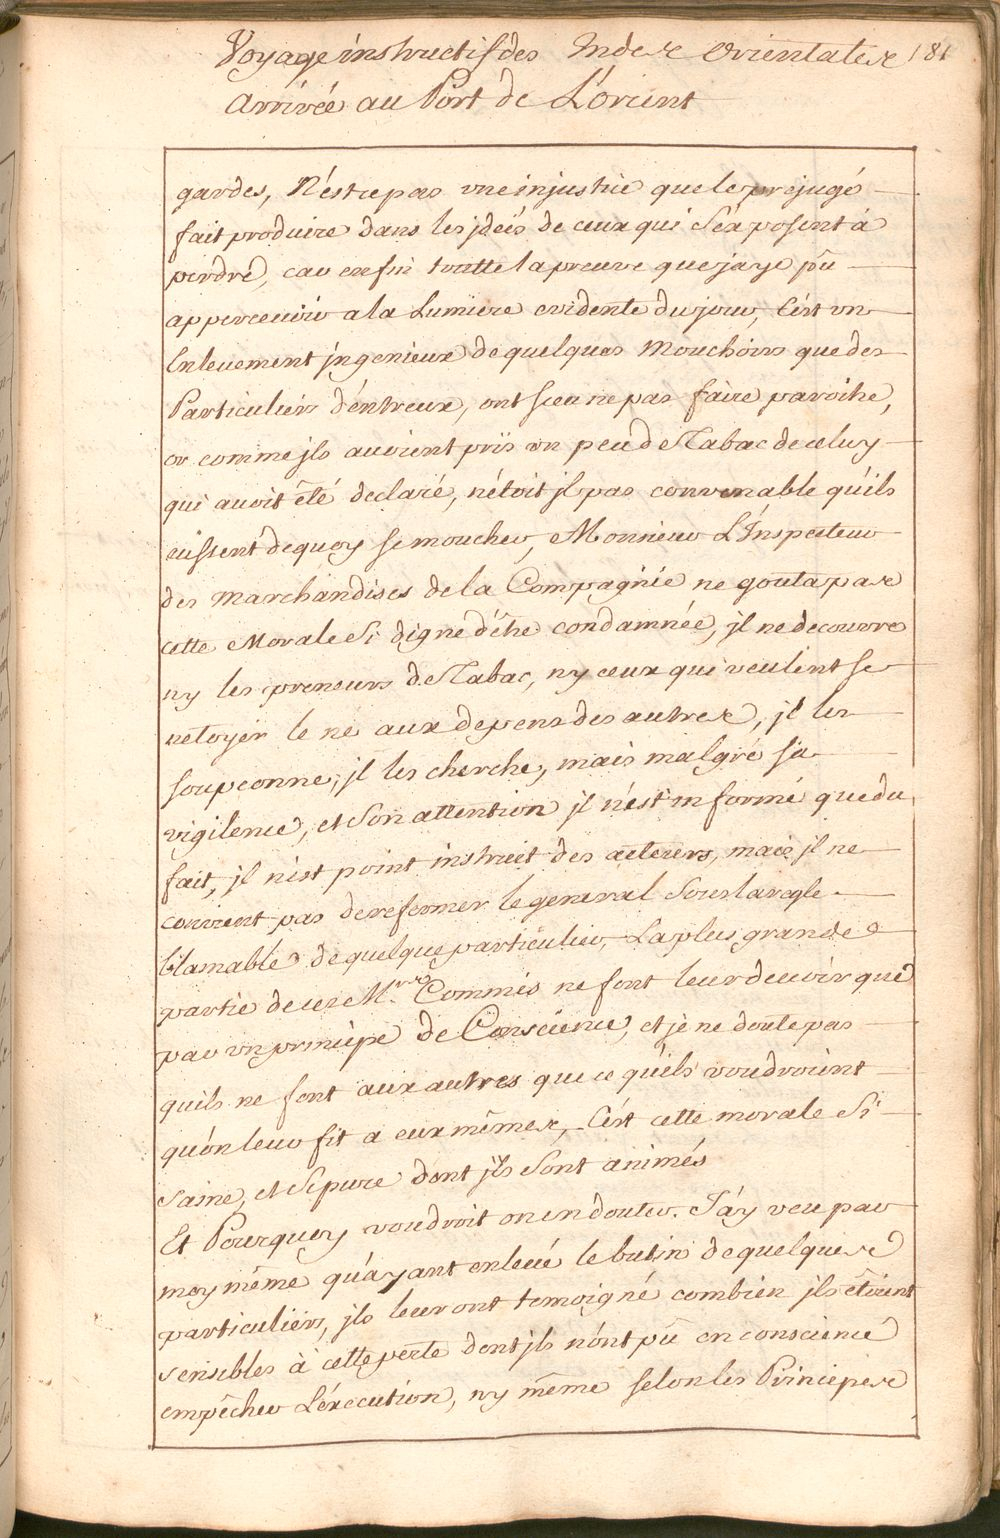 Voyage instructif des Indes Orientales 181
Arrivée au Port de L'orient
gardes, N'est ce pas une injustice que le prejugé
fait produire dans les jdeés de ceux qui S'éxposent à
perdre, car enfin toutte la preuve que jaye pû
appercevoir a la Lumiere evidente du jour, C'ést un
Enlevement jngenieux de quelques Mouchoirs que des
Particuliers d'éntreux, ont sceu ne pas faire paroitre,
or comme jls avoient pris un peu de Tabac de celuy
qui avoit êté declaré, n'étoit jl pas convenable qu'ils
eussent dequoy se moucher, Monsieur L'Inspecteur
des Marchandises de la Compagnie ne gouta pas
cette Morale Si digne d'être condamnée, jl ne decouvre
ny les preneurs de Tabac, ny ceux qui veulent se
netoyer le né aux depens des autres, jl les
soupçonne, jl les cherche, mais malgré sa
vigilence, et Son attention jl n'est informé que du
fait, jl n'est point instruit des acteurs, mais jl ne
convient pas de refermer le general Sous la regle
blamable de quelque particulier, La plus grande
partie de ces M.rs Commis ne font leur devoir que
par un principe de Conscience, et je ne doute pas
quils ne font aux autres que ce qu'ils voudroient
qu'on leur fit a eux mêmes, C'ést cette morale Si
saine, et Si pure dont jls Sont animés
Et Pourquoy voudroit on en douter. J'áy veu par
moy même qu'ayant enlevé le butin de quelques
particuliers, jls leur ont temoigné combien jls êtoient
sensibles à cette perte dont jls n'ont pû en conscience
empêcher L'éxecution, ny même selon les Principes